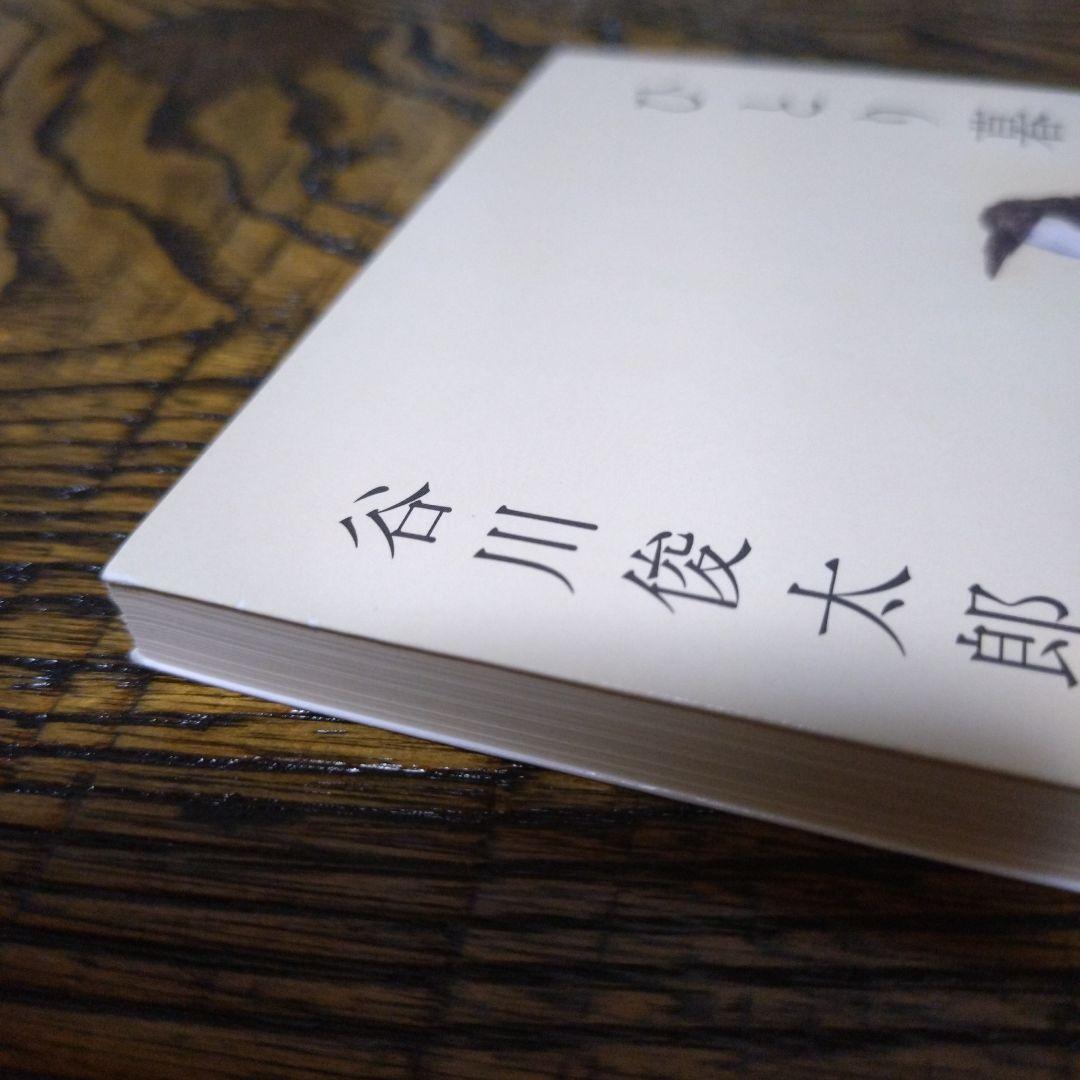 ひとり暮
谷川俊太郎